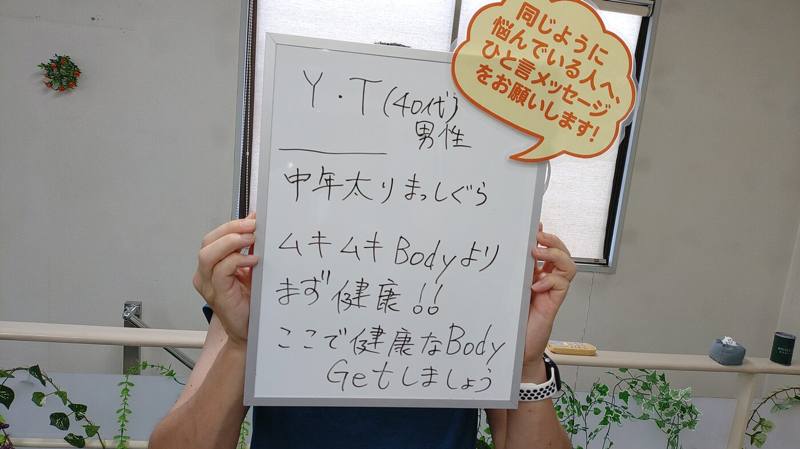 同じように
悩んでいる人へ、
ひと言メッセージ
をお願いします!
Y・T(40代)
男性
中年太りまっしぐら
ムキムキBodyより
まず健康!!
ここで健康なBody
Getしましょう